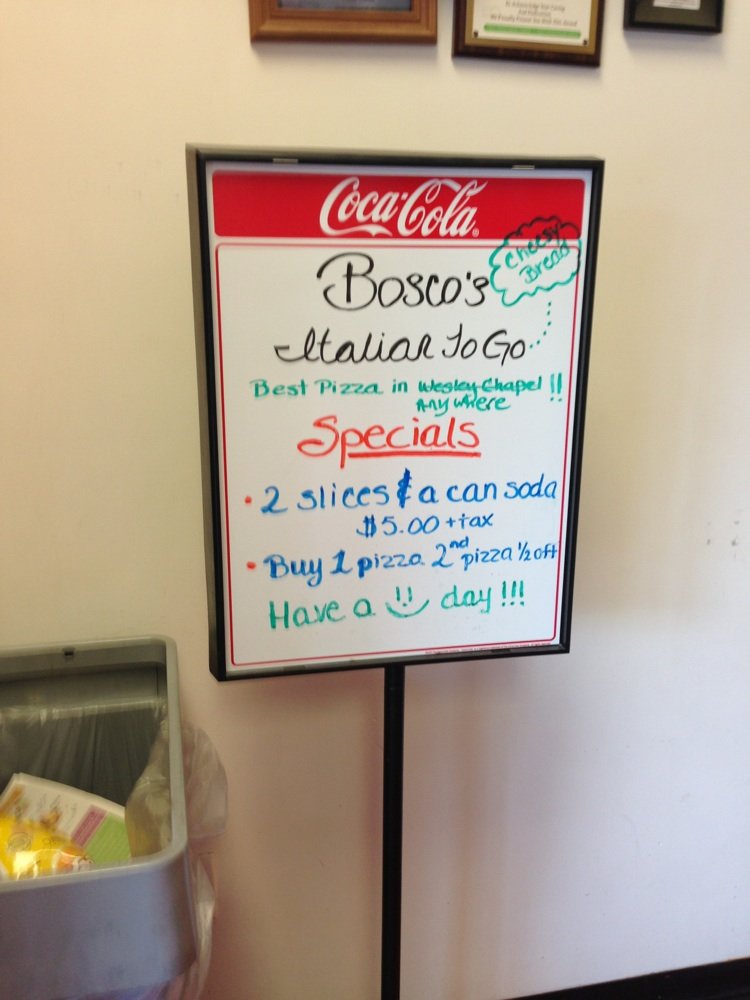 Coca-Cola
Cheesy
Bread
Bosco's
Italian To Go
Best Pizza in Wesley Chapel !!
Anywhere
Specials
• 2 slices & a can soda
$5.00 + tax
• Buy 1 pizza 2nd pizza 1/2 off
Have a day !!!